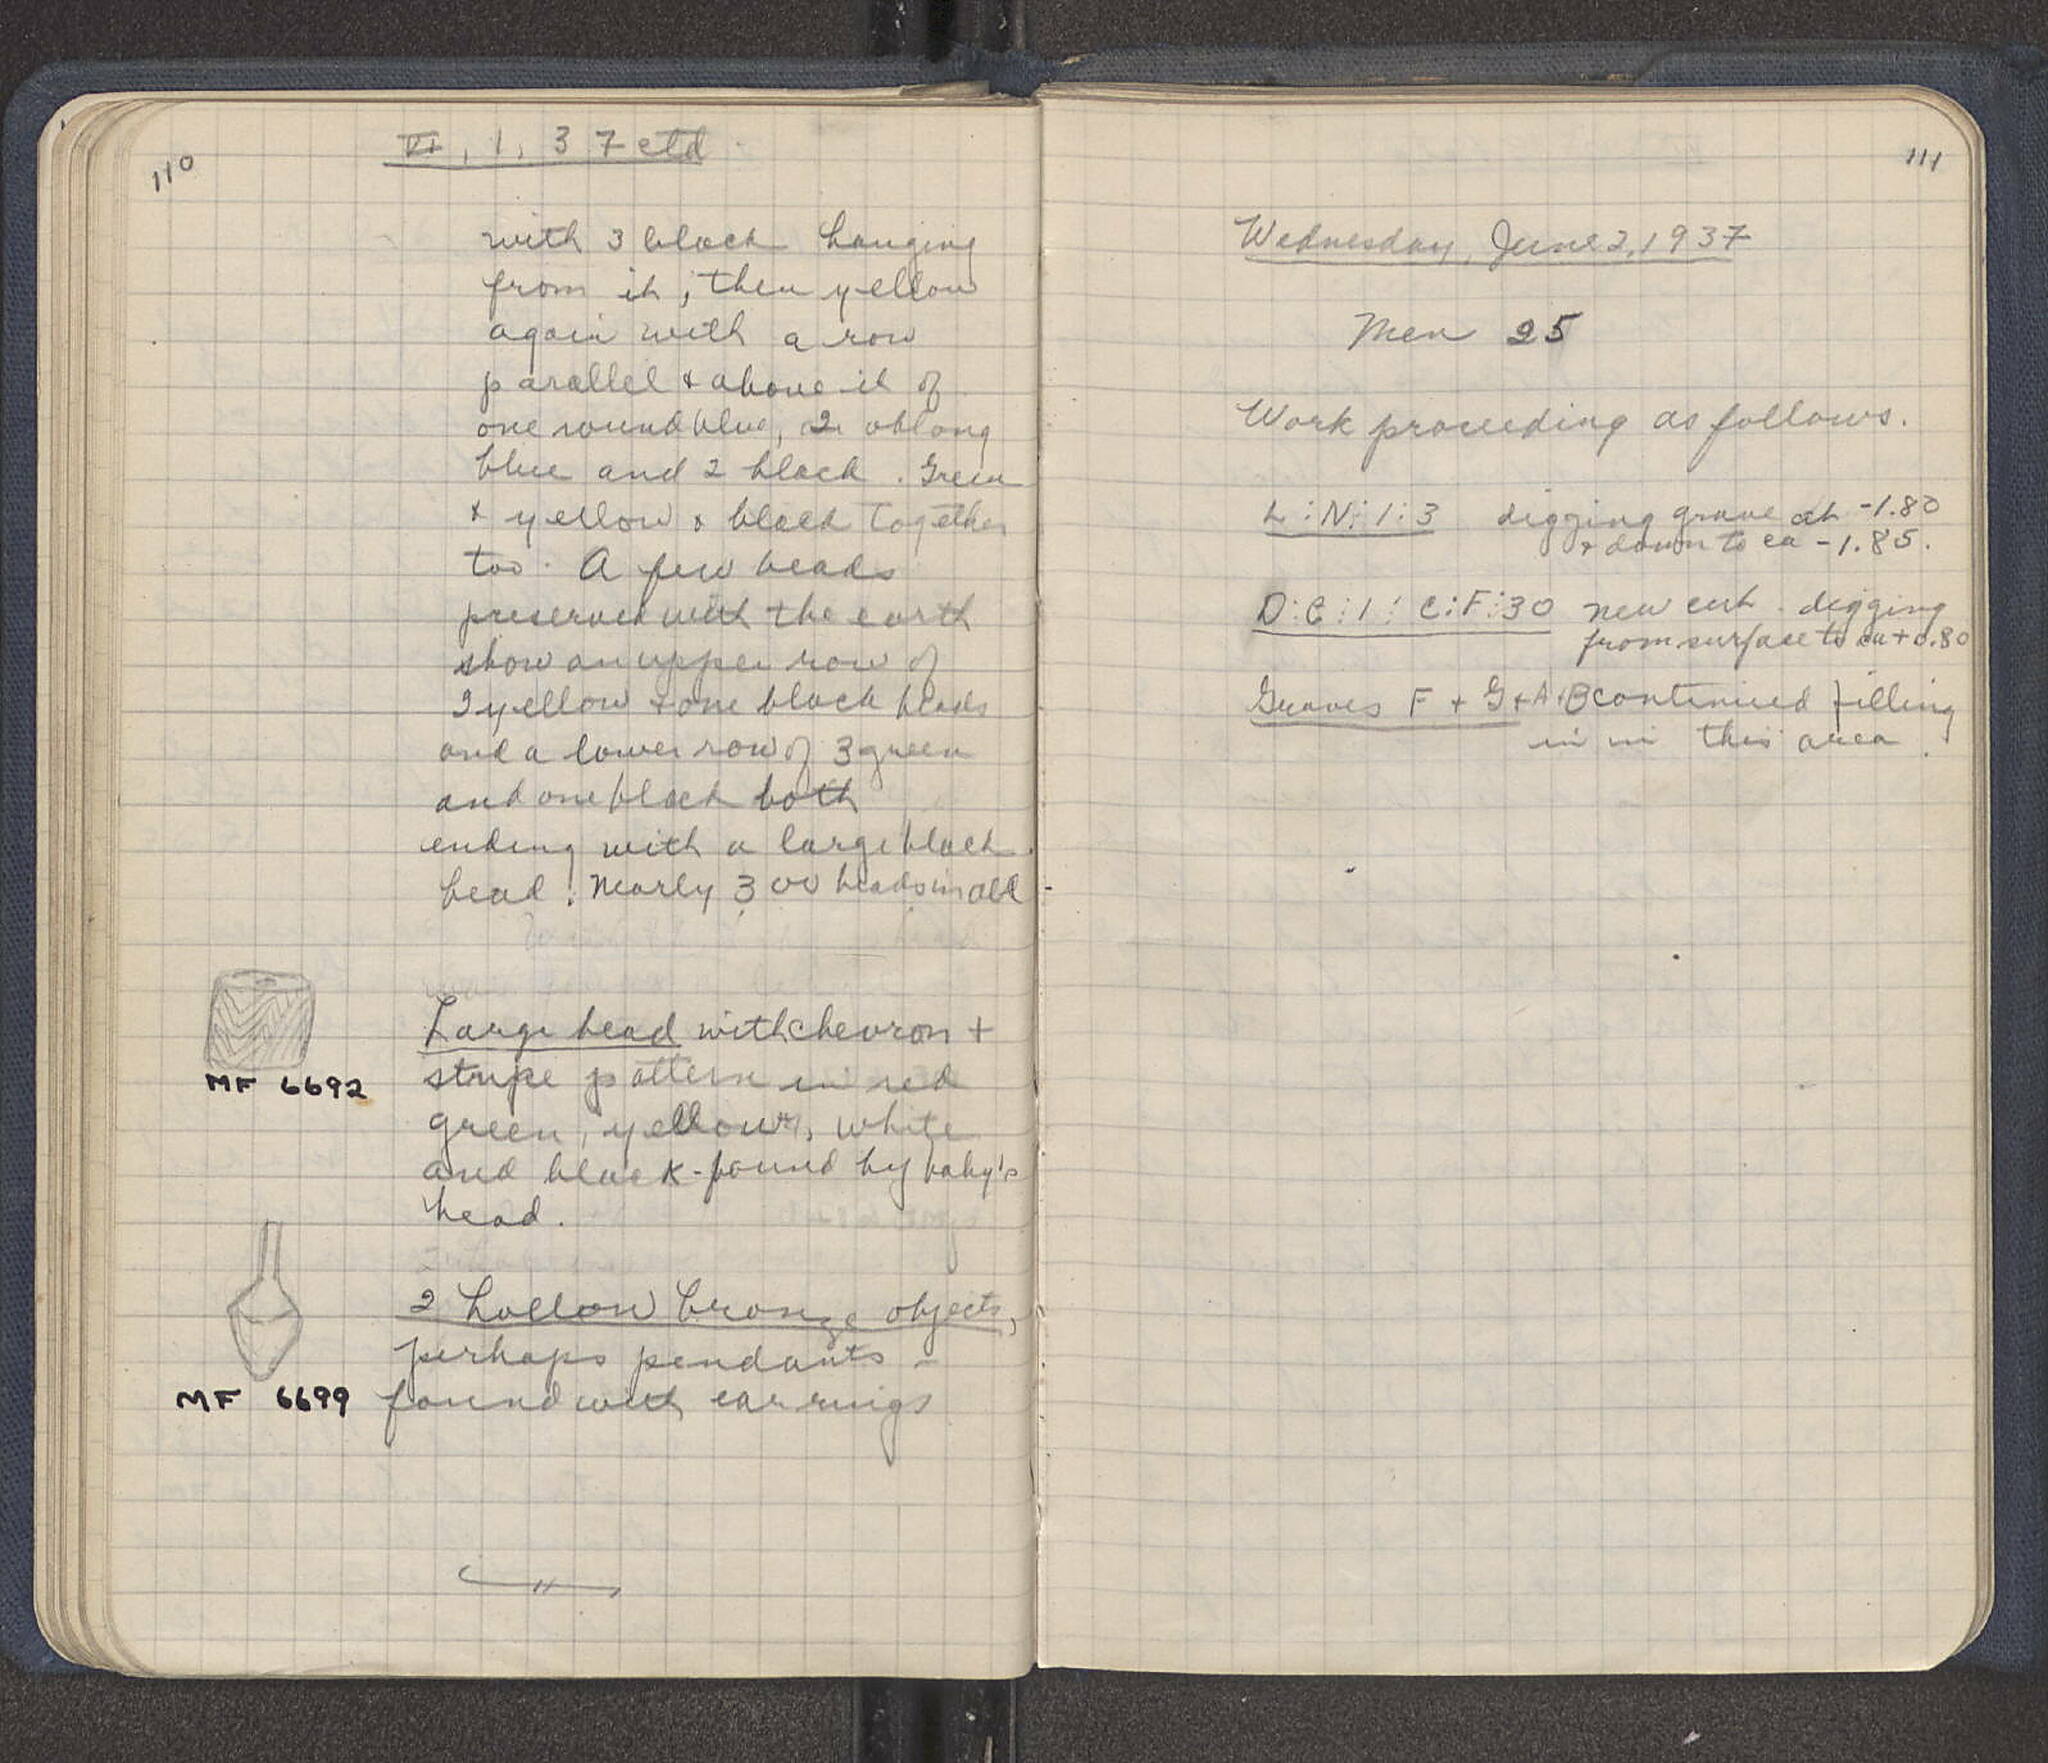 110
VI, 1, 37 ctd
with 3 black hanging
from it; then yellow
again with a row
parallel & above it of
one round blue, 2 oblong
blue and 2 black. Green
& yellow & black together
too. A few beads
preserved with the earth
show an upper row of
2 yellow & one black beads
and a lower row of 3 green
and one black both
ending with a large black
bead. Nearly 300 beads in all
Large bead with chevron +
stripe pattern in red
MF 6692
green, yellow, white
and black - found by baby's
head.
2 hollow bronze objects,
perhaps pendants -
MF 6699
found with earrings
111
Wednesday, June 2, 1937
Men 25
Work proceeding as follows.
L:N:1:3 digging grave at -1.80
& down to ca -1.85.
D:C:1: C:F:30 new cut. digging
from surface to ca +0.80
Graves F + G + A + B continued filling
in in this area.